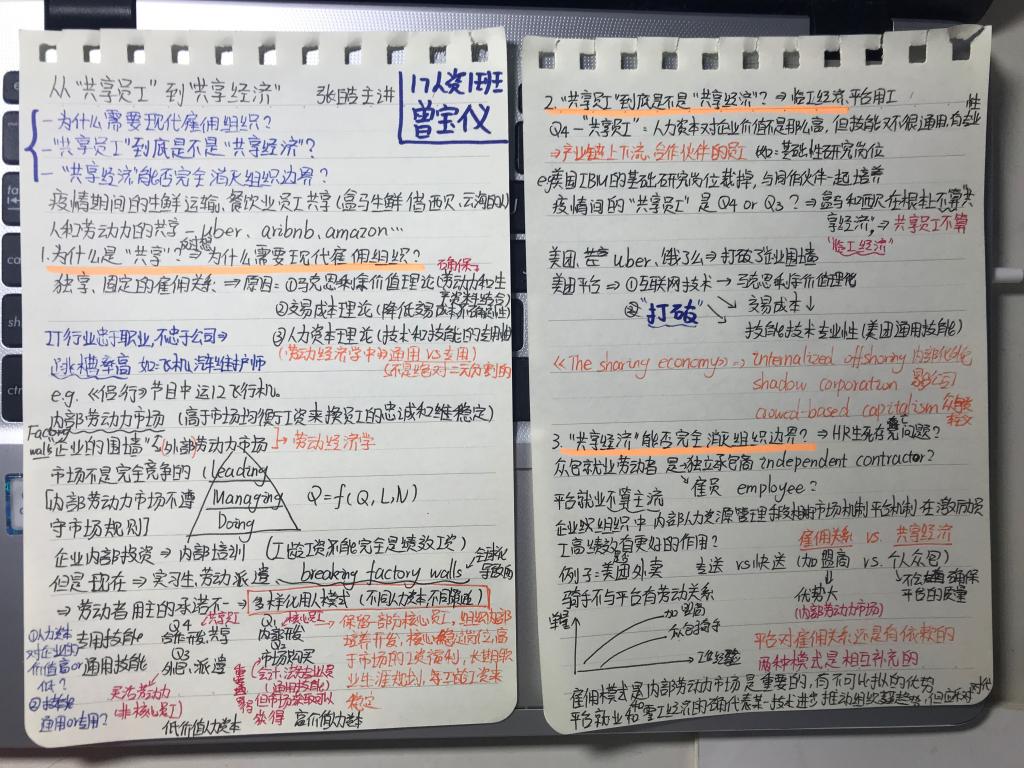 从"共享员工"到"共享经济" 张皓主讲
17人资1班
曾宝仪
- 为什么需要现代雇佣组织?
- "共享员工"到底是不是"共享经济"?
- "共享经济"能否完全消灭组织边界?
疫情期间的生鲜运输、餐饮业员工共享(盒马生鲜借西贝、云海肴的)
人和劳动力的共享 - uber、aribnb、amazon…
1.为什么是"共享"?⇒为什么需要现代雇佣组织?
确保
独享、固定的雇佣关系 ⇒ 原因:①马克思剩余价值理论(劳动力和生产资料结合)
②交易成本理论(降低交易成本不确定性)
IT行业忠于职业,不忠于公司⇒
③人力资本理论(技术和技能的专用性)
跳槽率高 如飞机洋维护师
(劳动经济学中⇒通用 vs 专用)
(不是绝对二元分割的
e.g.《侣行》节目中运12飞行机
内部劳动力市场 (高于市场均衡工资来换员工的忠诚和维稳定)
Factory walls
"企业的围墙"(外部)劳动力市场 ]→劳动经济学
市场不是完全竞争的
Leading
Managing
Doing
Q=f(Q,L,N)
[内部劳动力市场不遵
守市场规则]
企业内部投资 ⇒ 内部培训 (工龄工资不能完全是绩效工资)
但是现在 ⇒ 实习生、劳动派遣、breaking factory walls
⇒ 劳动者用主的承诺不一→多样化用人模式(不同人力资本不同策略)
Q4 共享员工 Q1 核心员工
专用技能 合作开发、共享 内部开发
Q3 Q2
通用技能 外包、派遣 市场购买
①人力资本
对企业的
价值高or
低?
②技能
通用or专用?
买活劳动力
(非核心员工)
会计、法务专业人员
(通用技能)
但市场
获得
保留一部分核心员工,组织内部
培养开发,核心岗位,高
于市场的工资福利,长期职
业生涯规划,
稳定
低价值人力资本 高价值人力资本
2."共享员工"到底是不是"共享经济"?⇒临工经济,平台用工
Q4 - "共享员工"=人力资本对企业价值不是那么高,但技能又不很通用,有专业性
⇒产业链上下流、合作伙伴的员工 如:基础性研究岗位
eg美国IBM的基础研究岗位裁掉,与同伴伙伴一起培养
疫情间的"共享员工"是Q4 or Q3?⇒盒马和西贝在根上不算共享经济,→共享员工不算
"临工经济"
美团、uber、饿了么⇒打破了企业围墙
美团平台 ⇒ ①互联网技术→马克思剩余价值理论
② "打破" 交易成本↓
技能技术专业性(美团通用技能)
《The sharing economy》⇒ internalized offshoring 内部化外包
shadow corporation 影公司
crowd-based capitalism 众包资本主义
3."共享经济"能否完全消灭组织边界?⇒HR生死存亡问题?
众包就业劳动者 是→独立承包商 independent contractor?
雇员 employee?
平台就业不算主流
企业组织中内部人力资源管理手段和抽市场机制平台机制在激励员
工高绩效有更好的作用?
雇佣关系 vs. 共享经济
例子:美团外卖 专送 vs 快送 (加盟商 vs. 个人众包)
骑手不与平台有劳动关系
优势大
(内部劳动力市场)
不会确保
平台的质量
加盟商
众包骑手
工作经验
平台对雇佣关系还是有依赖的
两种模式是相互补充的
雇佣模式是内部劳动力市场是重要的,有不可比拟的优势
平台就业和零工经济的确代表某一技术进步推动组织变革趋势,但应对时代